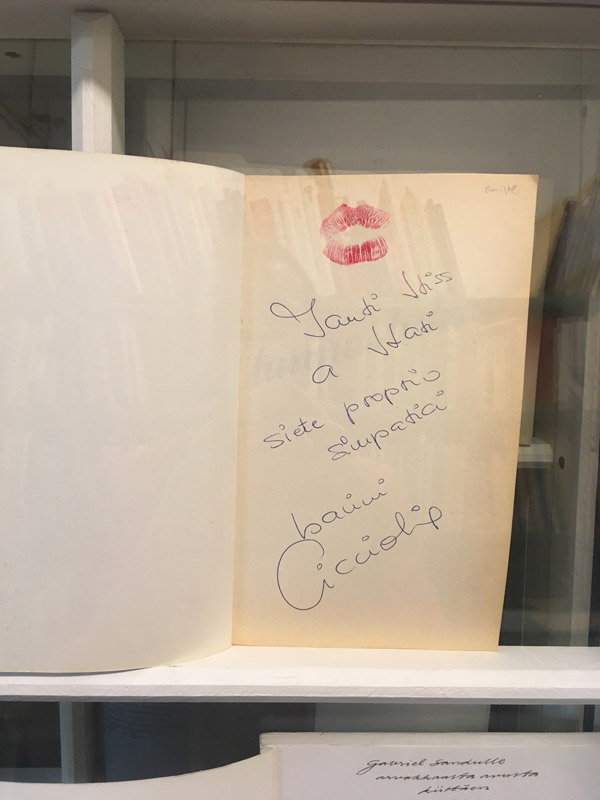 Tanti kiss
a Stati
siete proprio
simpatici
bacini
Cicciolina
Gabriel Sandulle
arvokkaasta avusta
kiittäen